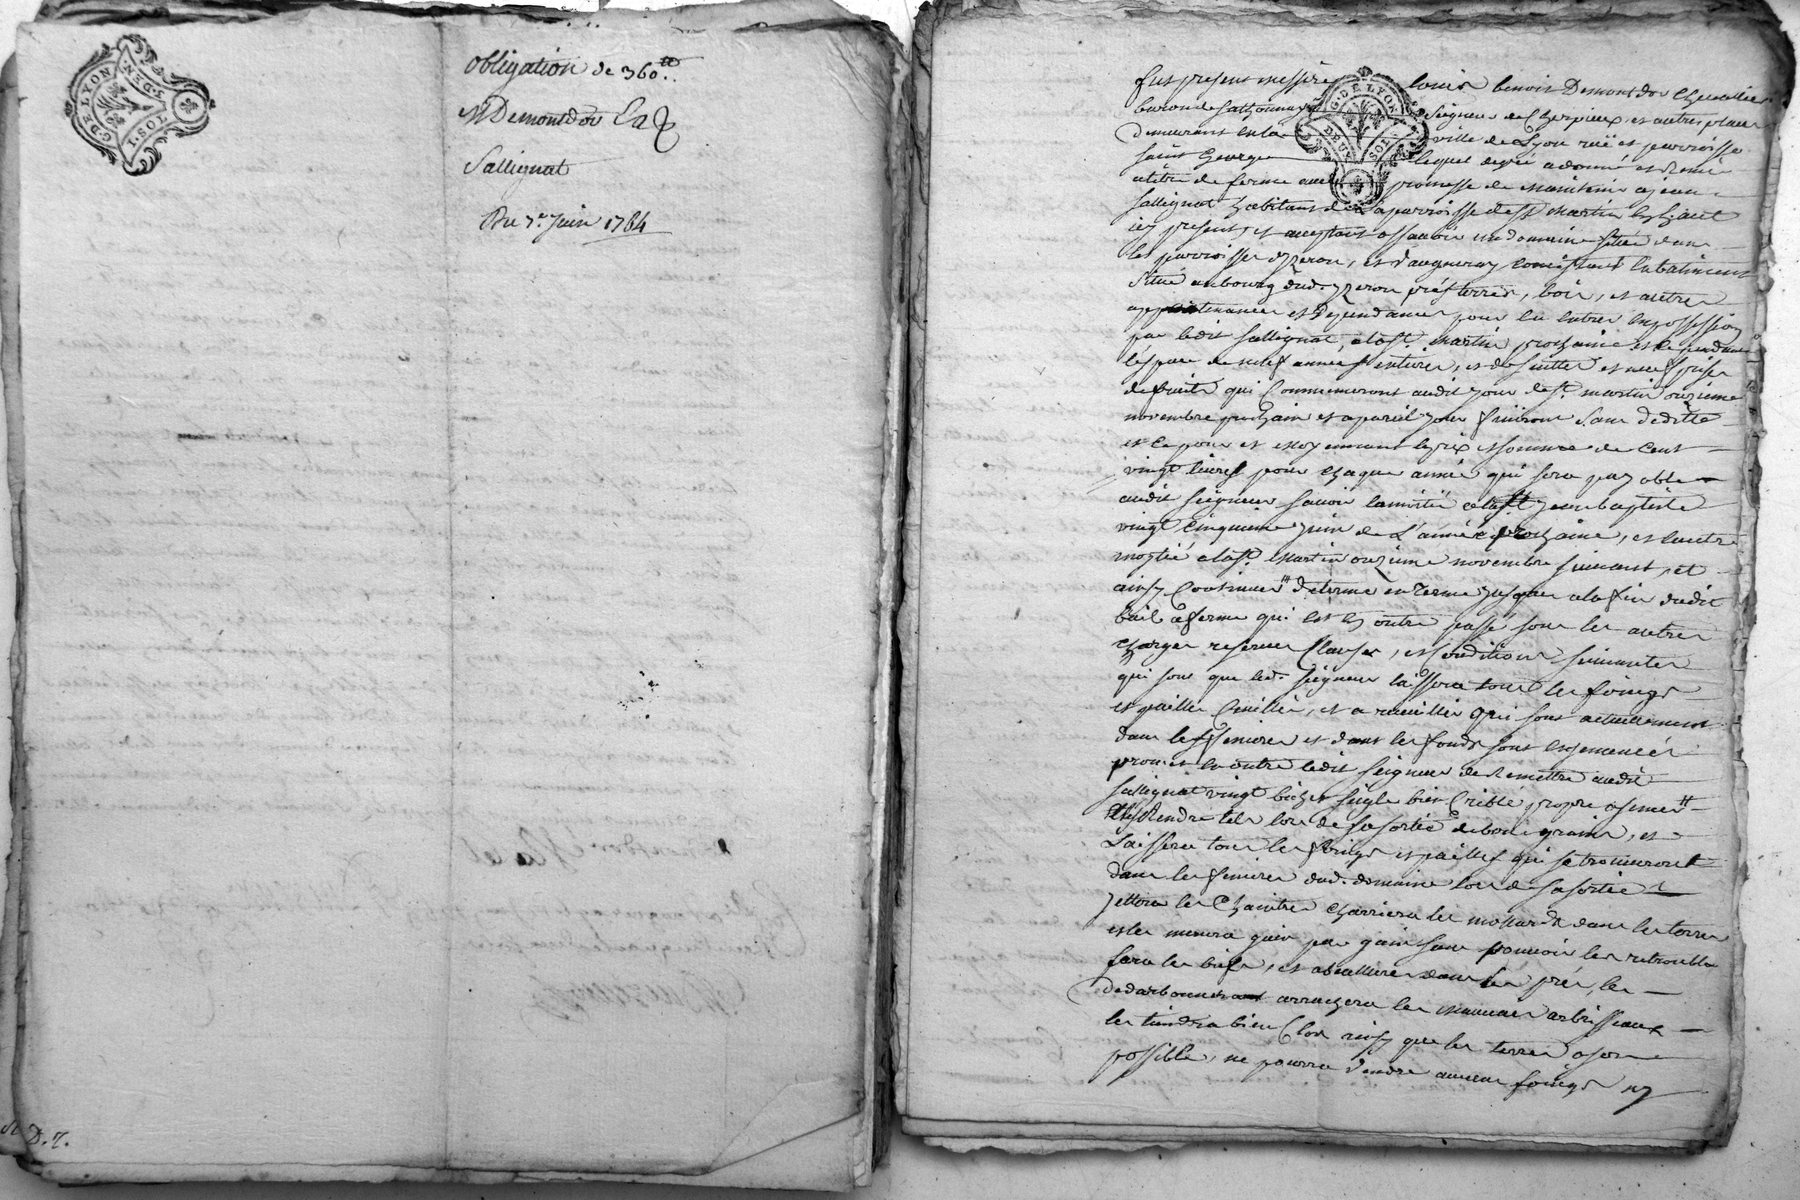 G. DE LYON
I. SOL
DEN.
obligation de 360 tt..
Mr Demontdor Laz
Sallignat
Du 7e Juin 1764
fut present messire louis benoit Demontdor chevallier
baron de Seigneur de et autres places
demeurant en la ville de Lyon rüe et parroisse
saint George lequel degré a donné et remis
a titre de ferme avec promesse de maintenir a jean
Sallignat habitant de la parroisse de St Martin
icy present, et acceptant assavoir un domaine situé dans
les parroisses dyzeron, et vaugneray consistant en batiments
situé au bourg dud. yzeron prés terres, bois, et autres
appartenances et dependances pour en entrer en possession
par ledit Sallignat, a la St. Martin prochaine et ce pendant
lespace de neuf années entieres, et de suitte et neuf prises
de fruits qui commenceront audit jour de St. martin onzieme
novembre prochain et a pareil jour finiront sans deditte
et ce pour et moyennant le prix et somme de cent
vingt livres pour chaque année qui sera payable
audit seigneur savoir la moitié a la St jean baptiste
vingt cinquieme juin de L'année prochaine, et lautre
moytié a la St. Martin onzieme novembre suivant, et
ainsy continuer de terme en terme jusques a la fin dudit
bail a ferme qui est en outre passé sous les autres
charges reserves clauses, et conditions suivantes
qui sont que led. seigneur laissera tous les foings
et pailles cueillis, et a cueillir qui sont actuellement
dans les fenieres et dont les fonds sont ensemencés
promet en outre ledit seigneur de remettre audit
Sallignat vingt bichets seigle bien criblé propre a semer
rendre tels lors de sa sortie de bons grains, et
Laissera tous les foings et pailles qui se trouveront
dans les fenieres dud. domaine lors de sa sortie
jettera les chaintres charriera les mottards dans les terres
et les menera gain par gain sans pouvoir les retroubler
fera les biefs, et abcattures dans les prés, les
arrachera les mauvais arbrisseaux
les tiendra bien clos ainsy que les terres a son
possible, ne pourra vendre aucuns foings ny
D. 7.